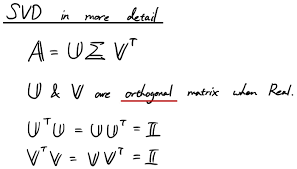 SVD in more detail
𝔸 = 𝕌 Σ 𝕍ᵀ
𝕌 & 𝕍 are orthogonal matrix when Real.
𝕌ᵀ𝕌 = 𝕌𝕌ᵀ = 𝕀
𝕍ᵀ𝕍 = 𝕍𝕍ᵀ = 𝕀